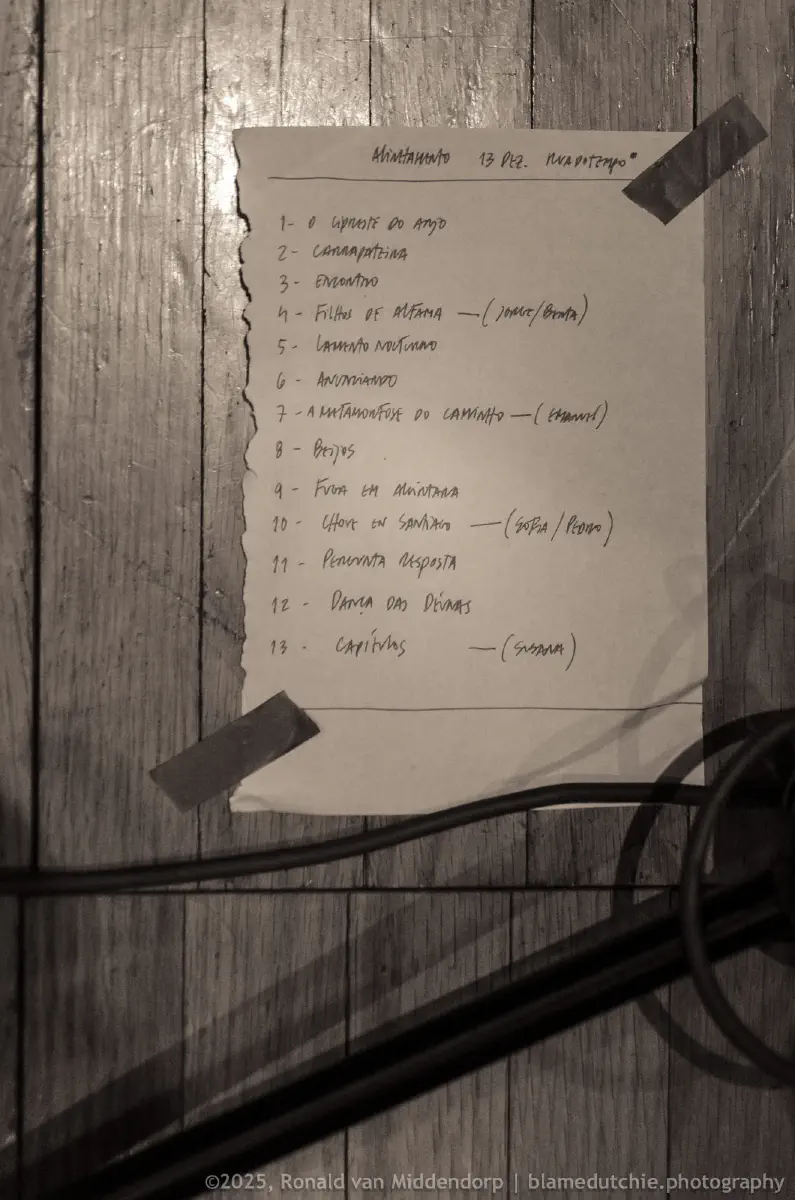 ALINHAMENTO 13 DEZ.
1- O CIPRESTE DO ANJO
2- CARRAPATEIRA
3- ENCONTRO
4- FILHOS DE ALFAMA —(JORGE/BENTA)
5- LAMENTO NOCTURNO
6- ANUNCIANDO
7-A METAMORFOSE DO CAMINHO —(EMANUEL)
8- BEIJOS
9- FUGA EM ALCÂNTARA
10- CHOVE EN SANTIAGO —(SOFIA/PEDRO)
11- PERGUNTA RESPOSTA
12- DANÇA DAS
13- CAPÍTULOS —(SUSANA)
©2025, Ronald van Middendorp | blamedutchie.photography